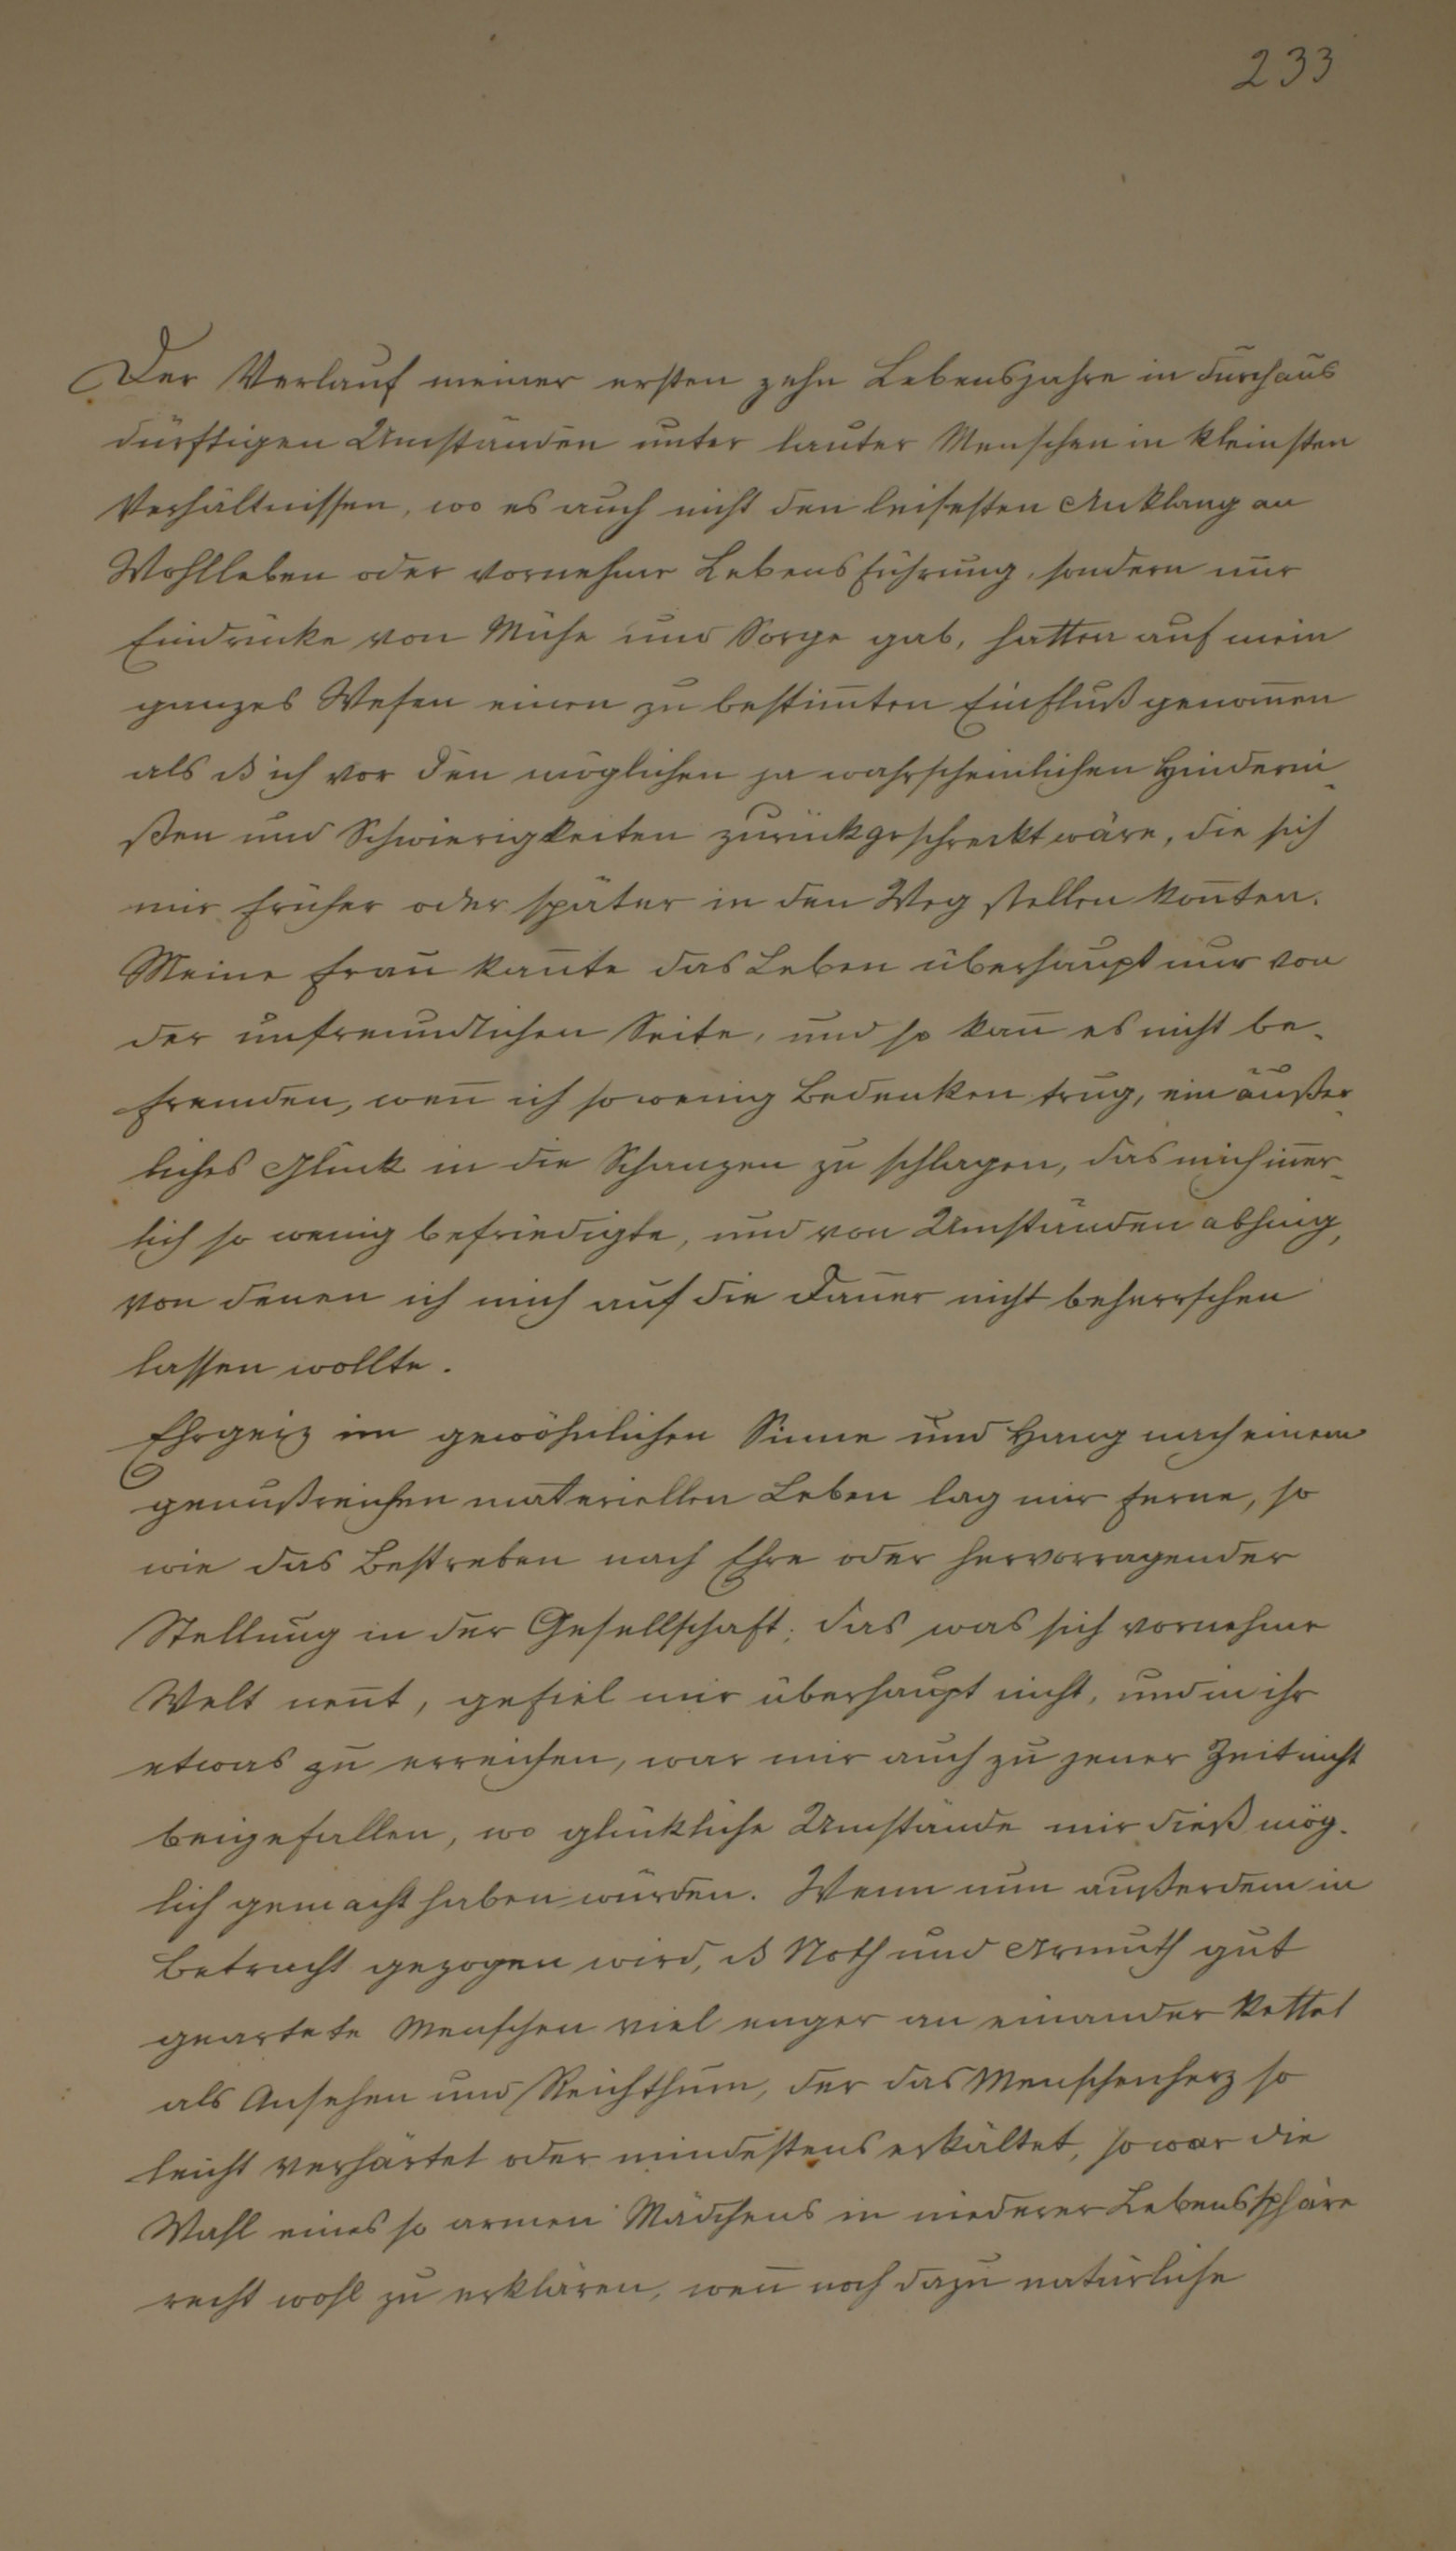 233
Der Verlauf meiner ersten zehn Lebensjahre in durchaus
dürftigen Umständen unter lauter Menschen in kleinsten
Verhältnissen, wo es auch nicht den leisesten Anklang an
Wohlleben oder vornehme Lebensführung, sondern nur
Eindrücke von Mühe und Sorge gab, hatten auf mein
ganzes Wesen einen zu bestim̄ten Einfluß genom̄en
als ß ich vor den möglichen ja wahrscheinlichen Hinderni-
ßen und Schwierigkeiten zurückgeschreckt wäre, die sich
mir früher oder später in den Weg stellen kon̄ten.
Meine Frau kan̄te das Leben überhaupt nur von
der unfreundlichen Seite, und so kan̄ es nicht be-
fremden, wen̄ ich so wenig Bedenken trug, ein äußer-
liches Glück in die Schanzen zu schlagen, das mich in̄er-
lich so wenig befriedigte, und von Umständen abhing,
von denen ich mich auf die Dauer nicht beherrschen
lassen wollte.
Ehrgeiz im gewöhnlichen Sinne und Hang nach einem
genußreichen materiellen Leben lag mir ferne, so
wie das Bestreben nach Ehre oder hervorragender
Stellung in der Gesellschaft; das was sich vornehme
Welt nen̄t, gefiel mir überhaupt nicht, und in ihr
etwas zu erreichen, war mir auch zu jener Zeit nicht
beigefallen, wo glückliche Umstände mir dieß mög-
lich gemacht haben würden. Wenn nun außerdem in
Betracht gezogen wird, ß Noth und Armuth gut
geartete Menschen viel enger an einander kettet
als Ansehen und Reichthum, der das Menschenherz so
leicht verhärtet oder mindestens erkältet, so war die
Wahl eines so armen Mädchens in niederer Lebenssphäre
recht wohl zu erklären, wen̄ noch dazu natürliche